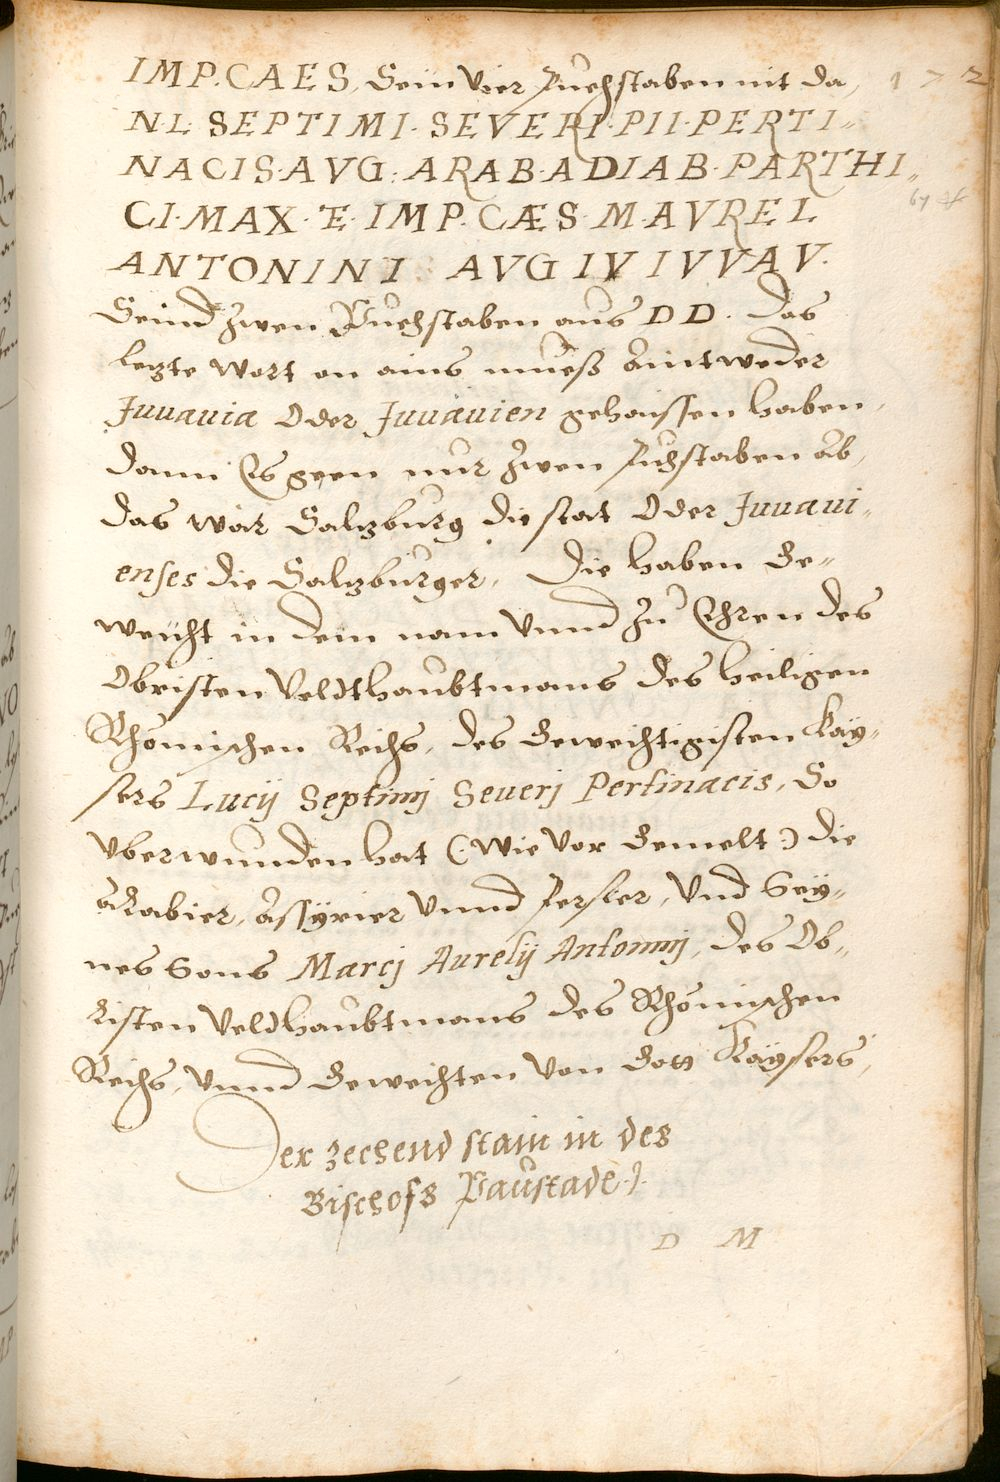 IMP. CAES. Sein Vier Puechstaben nit da, 172
N·L· SEPTIMI· SEVERI· PII· PERTI=
NACIS· AVG: ARAB· ADIAB· PARTHI=
CI· MAX· E· IMP· CÆS· MAVREL
ANTONINI AVG IV IVVAV.
Seind zwen Puechstaben aus DD. das
lezte Wort on ains mueß Aintweder
Juuauia Oder Juuauien gehaissen haben,
dann Es geen nur zwen Puchstaben ab,
das wär Salzburg die stat Oder Juuaui=
enses die Salzburger, Die haben Ge=
weicht in dem nam Vnnd Zu Ehren des
Obristen Veldthaubtmans des heiligen
Rhömischen Reichs, des Geweichtigisten Kay=
sers Lucij Septimj Seuerj Pertinacis, So
Vberwunden hat (: Wie Vor Gemelt :) die
Arabier, Assyrier Vnnd Persier, Vnd Sey=
nes Sons Marcj Aurelij Antoninj, des Ob=
risten Veldhaubtmans des Rhömischen
Reichs, Vnnd Geweichten Von Gott Kaysers,
Der zechend stain in des
Bischofs Paustade.
D M